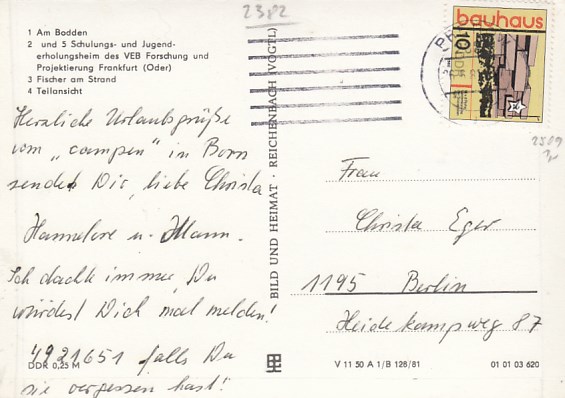 2382
1 Am Bodden
2 und 5 Schulungs- und Jugend-
erholungsheim des VEB Forschung und
Projektierung Frankfurt (Oder)
3 Fischer am Strand
4 Teilansicht
Herzliche Urlaubsgrüße
vom „campen" in Born
sendet Dir, liebe Christa
Hannelore u. Mann.
Ich dachte immer, Du
würdest Dich mal melden!
4921651 falls Du
sie vergessen hast!
DDR 0,25 M
BILD UND HEIMAT · REICHENBACH (VOGTL)
bauhaus
10
DDR
2509
Frau
Christa Eger
1195 Berlin
Heidekampweg 87
V 11 50 A 1/B 128/81
01 01 03 620